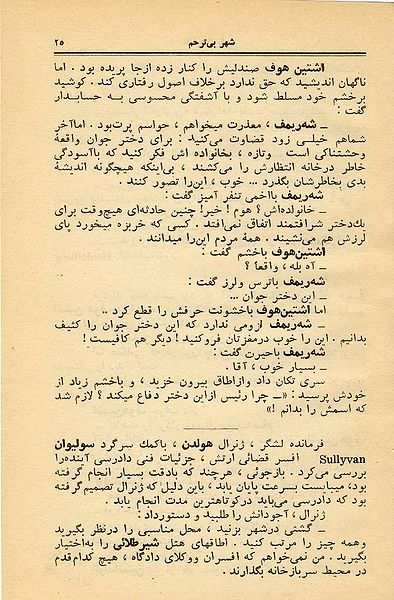 شهر بی‌ترحم ۲۵
اشتین هوف صندلیش را کنار زده ازجا پریده بود . اما
ناگهان اندیشید که حق ندارد برخلاف اصول رفتاری کند . کوشید
برخشم خود مسلط شود و با آشفتگی محسوسی به حسابدار
گفت :
ــ شه‌ریمف ، معذرت میخواهم ، حواسم پرت‌بود . اماآخر
شماهم خیلی زود قضاوت می‌کنید : برای دختر جوان واقعهٔ
وحشتناکی است وتازه ، بخانواده اش فکر کنید که باآسودگی
خاطر درخانه انتظارش را می‌کشند ، بی‌اینکه هیچگونه اندیشهٔ
بدی بخاطرشان بگذرد ... خوب ، این‌را تصور کنند .
شه‌ریمف بااخمی تنفر آمیز گفت :
ــ خانواده‌اش ؟ هوم ! خیر! چنین حادثه‌ای هیچ‌وقت برای
یك‌دختر شرافتمند اتفاق نمی‌افتد . کسی که خربزه میخورد پای
لرزش هم می‌نشیند . همهٔ مردم این‌را میدانند .
اشتین‌هوف باخشم گفت :
ــ آه بله ، واقعاً ؟
شه‌ریمف باترس ولرز گفت :
ــ این دختر جوان ...
اما اشتاین‌هوف باخشونت حرفش را قطع کرد ..
ــ شه‌ریمف ! لزومی ندارد که این دختر جوان را کثیف
بدانیم . این را خوب درمغزتان فروکنید ! دیگر هم کافیست !
شه‌ریمف باحیرت گفت :
ــ بسیار خوب ، آقا .
سری تکان داد وازاطاق بیرون خزید ، و باخشم زیاد از
خودش پرسید : «ــ چرا رئیس ازاین دختر دفاع میکند ؟ لازم شد
که اسمش را بدانم !»
فرمانده لشگر ، ژنرال هولدن ، باکمك سرگرد سولیوان
Sullyvan افسر قضائی ارتش ، جزئیات فنی دادرسی آینده‌را
بررسی می‌کرد . بازجوئی ، هرچند که بادقت بسیار انجام گرفته
بود، میبایست بسرعت پایان یابد ، باین دلیل که‌ژنرال تصمیم‌گرفته
بود که دادرسی می‌باید درکوتاهترین مدت انجام یابد .
ژنرال ، آجودانش را طلبید و دستورداد :
ــ گشتی درشهر بزنید ، محل مناسبی را درنظر بگیرید
وهمه چیز را مرتب کنید . اطاقهای هتل شیرطلائی را به‌اختیار
بگیرید . من نمی‌خواهم که افسران ووکلای دادگاه ، هیچ کدام‌قدم
در محیط سربازخانه بگذارند .